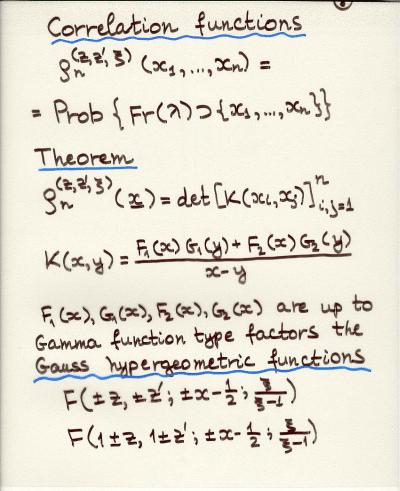 Correlation functions
ρₙ^(z,z',ξ) (x₁,...,xₙ) =
= Prob { Fr(λ) ⊃ {x₁,...,xₙ}}
Theorem
ρₙ^(z,z',ξ) (x) = det [K(xᵢ,xⱼ)]ⁿᵢ,ⱼ₌₁
K(x,y) = (F₁(x) G₁(y) + F₂(x) G₂(y)) / (x-y)
F₁(x), G₁(x), F₂(x), G₂(x) are up to
Gamma function type factors the
Gauss hypergeometric functions
F(±z, ±z'; ±x-1/2; ξ/(ξ-1))
F(1±z, 1±z'; ±x-1/2; ξ/(ξ-1))